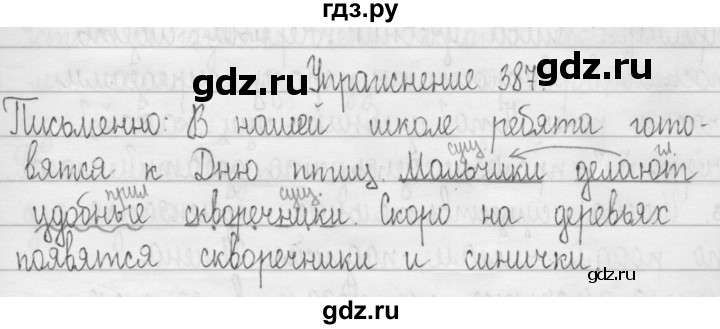 гдз.ру
gdz.ru
gdz.ru
Упражнение 387.
Письменно: В нашей школе ребята гото-
сущ. гл.
вятся к Дню птиц. Мальчики делают
прил сущ.
удобные скворечники. Скоро на деревьях
gdz.ru
gdz.ru
появятся скворечники и синички.
gdz.ru